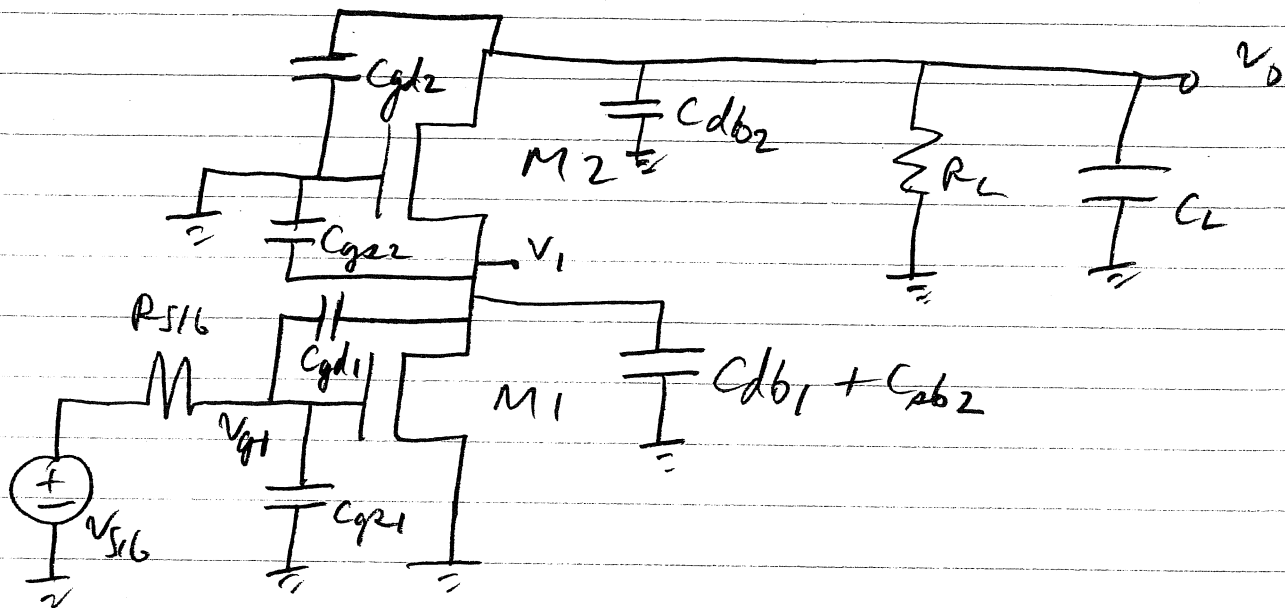 Cgd2
Vo
Cdb2
M2
RL
CL
Cgs2
V1
RSIG
Cgd1
M1
Cdb1 + Csb2
Vg1
+
-
Cgs1
VSIG